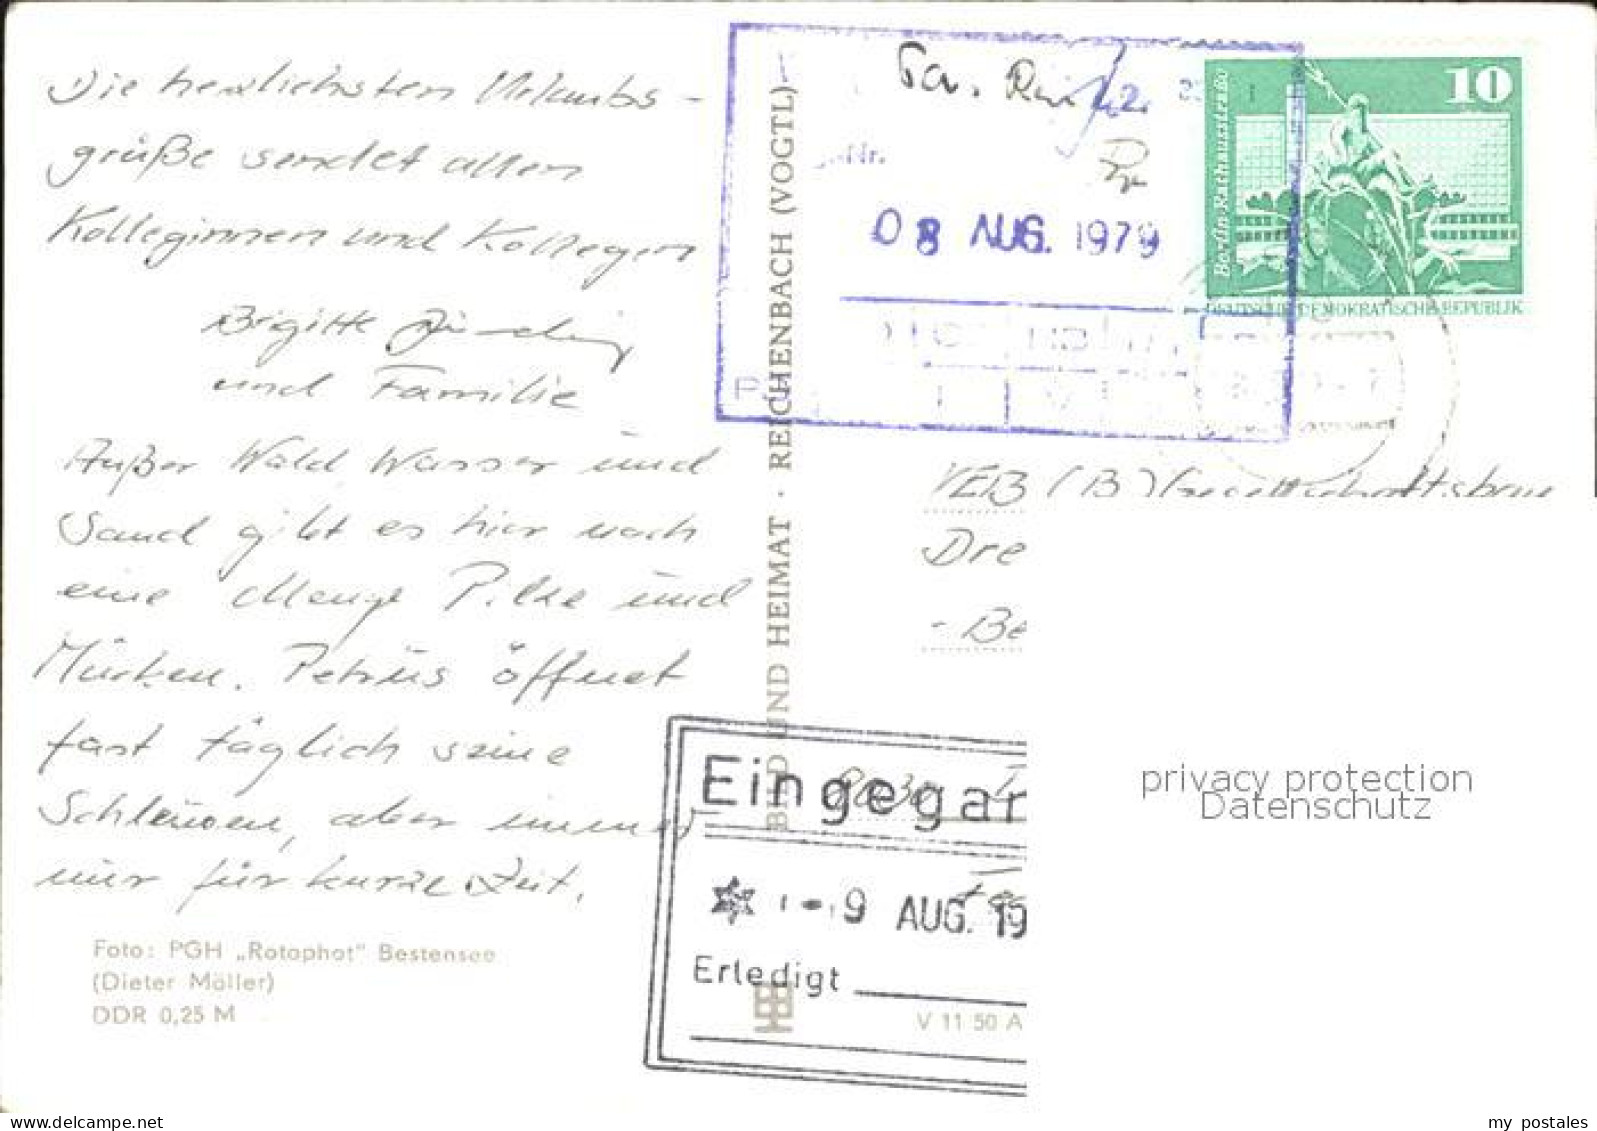 Die herzlichsten Urlaubs-
grüße sendet allen
Kolleginnen und Kollegen
Brigitte
und Familie
Außer Wald Wasser und
Sand gibt es hier noch
eine Menge Pilze und
Mücken. Petrus öffnet
fast täglich seine
Schleusen, aber immer
nur für kurze Zeit.
Foto: PGH „Rotophot" Bestensee
(Dieter Möller)
DDR 0,25 M
BILD UND HEIMAT · REICHENBACH (VOGTL)
Nr.
08 AUG. 1979
10
Berlin, Rathausstraße
DEUTSCHE DEMOKRATISCHE REPUBLIK
VEB (B) Gesellschaftsbau
Dre
- Be
8030
Eingegan
-9 AUG. 19
Erledigt
V 11 50 A
privacy protection
Datenschutz
www.delcampe.net
my postales